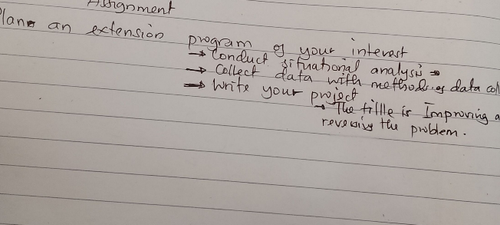 Assignment
Plan an extension program of your interest
→ Conduct situational analysis →
→ Collect data with methods of data col
→ Write your project
→ The tittle is Improving a
reversing the problem.